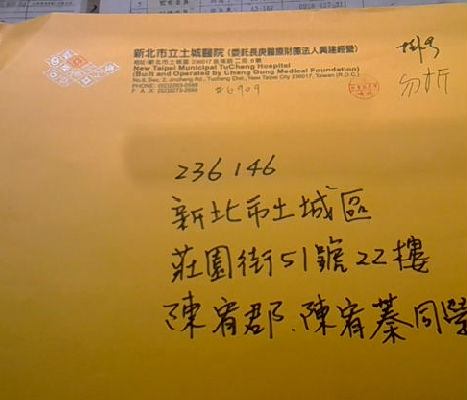 新北市立土城醫院(委託長庚醫療財團法人興建經營)
地址:新北市土城區 236017 金城路二段 6 號
New Taipei Municipal TuCheng Hospital
(Built and Operated by Chang Gung Medical Foundation)
No.6, Sec. 2, Jincheng Rd., Tucheng Dist., New Taipei City 236017, Taiwan (R.O.C.)
#6909
掛号
勿折
236146
新北市土城區
莊園街51號22樓
陳宥郡、陳宥蓁同學